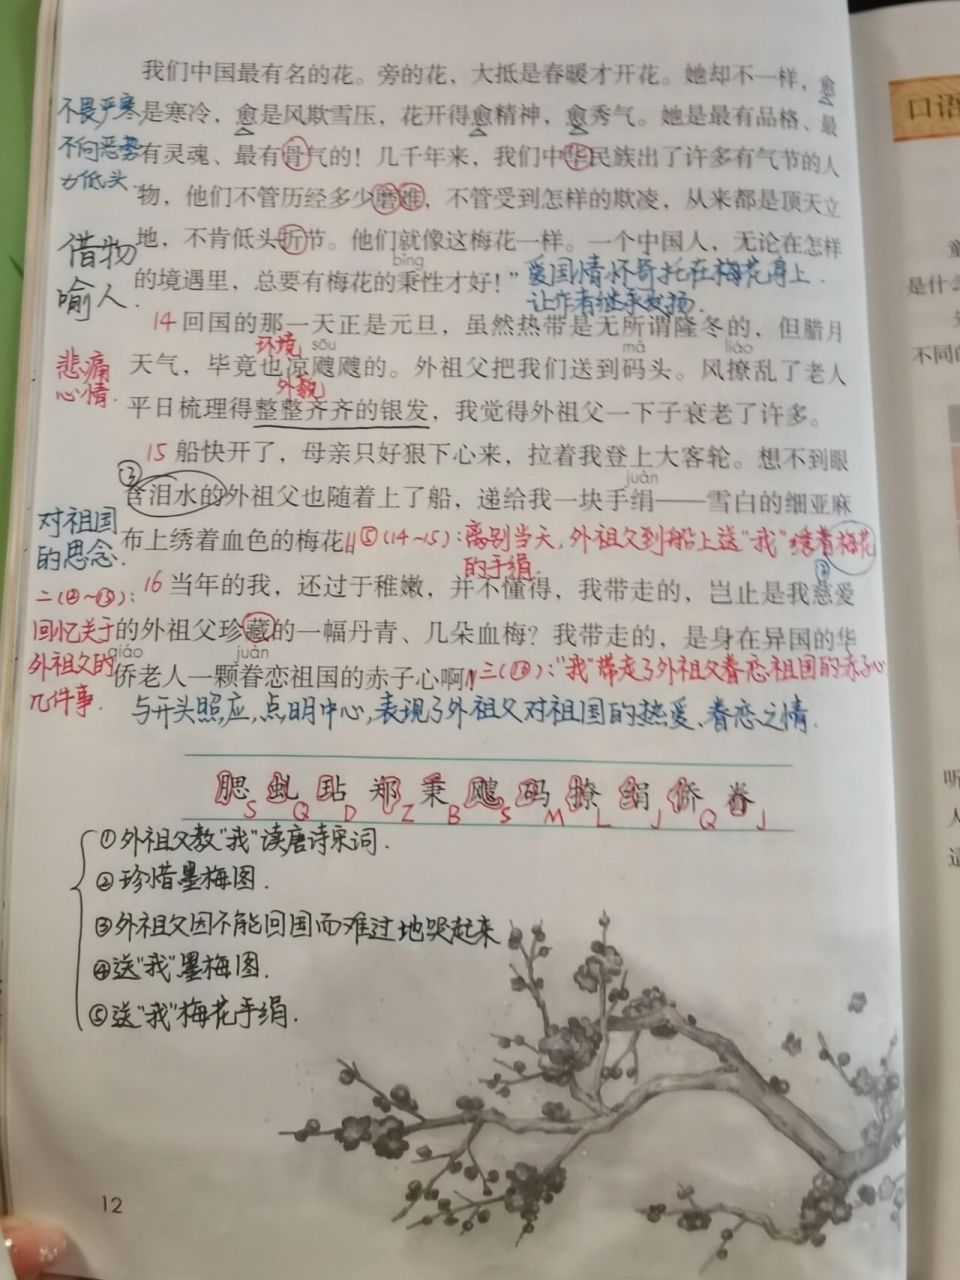 我们中国最有名的花。旁的花，大抵是春暖才开花。她却不一样，愈
不畏严寒
是寒冷，愈是风欺雪压，花开得愈精神，愈秀气。她是最有品格、最
不向恶势
有灵魂、最有骨气的！几千年来，我们中华民族出了许多有气节的人
力低头.
物，他们不管历经多少磨难，不管受到怎样的欺凌，从来都是顶天立
借物
地，不肯低头折节。他们就像这梅花一样。一个中国人，无论在怎样
bǐng
的境遇里，总要有梅花的秉性才好！”
爱国情怀寄托在梅花身上.
喻人.
让作者继承发扬.
14 回国的那一天正是元旦，虽然热带是无所谓隆冬的，但腊月
环境 sōu mǎ liáo
悲痛
天气，毕竟也凉飕飕的。外祖父把我们送到码头。风撩乱了老人
心情.
外貌
平日梳理得整整齐齐的银发，我觉得外祖父一下子衰老了许多。
15 船快开了，母亲只好狠下心来，拉着我登上大客轮。想不到眼
③ juàn
含泪水的外祖父也随着上了船，递给我一块手绢——雪白的细亚麻
对祖国
布上绣着血色的梅花
⑤(14~15)：离别当天，外祖父到船上送“我”绣着梅花
的思念.
的手绢.
16 当年的我，还过于稚嫩，并不懂得，我带走的，岂止是我慈爱
回忆关于
的外祖父珍藏的一幅丹青、几朵血梅？我带走的，是身在异国的华
qiáo juàn
外祖父的
侨老人一颗眷恋祖国的赤子心啊
“我”带走了外祖父眷恋祖国的赤子心
几件事.
与开头照应，点明中心，表现了外祖父对祖国的热爱、眷恋之情.
腮 虬 玷 郑 秉 飕 码 撩 绢 侨 眷
S Q D Z B S M L J Q J
①外祖父教“我”读唐诗宋词.
②珍惜墨梅图.
③外祖父因不能回国而难过地哭起来
④送“我”墨梅图.
⑤送“我”梅花手绢.
12
口语
是什么
不同的